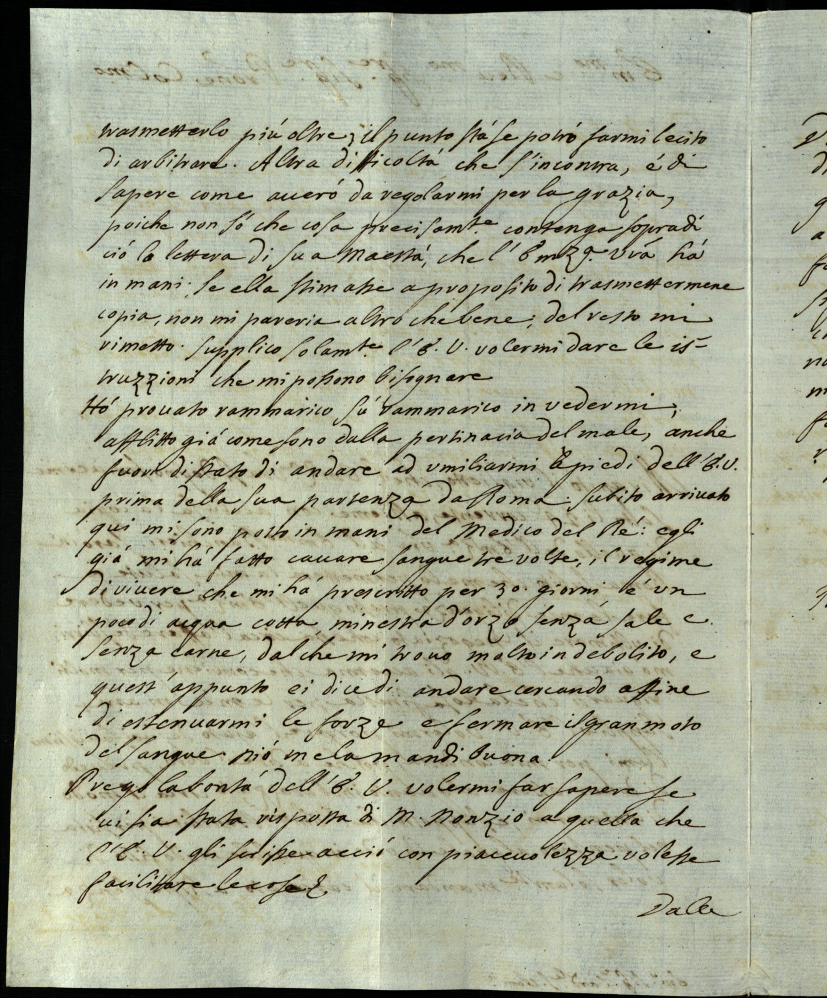 trasmetterlo piú oltre; il punto stá se potró farmi lecito
di arbitrare. Altra difficoltá che s'incontra, é di
sapere come averó da regolarmi per la grazia,
poiche non só che cosa precisamte contenga sopradi
ció la lettera di sua Maestá, che l'Emza vrá há
in mani. Se ella stimasse a proposito di trasmettermene
copia, non mi pareria altro che bene; del resto mi
rimetto. Supplico solamte l'E. V. volermi dare le is=
truzzioni che mi possono bisognare
Hó provato rammarico sú rammarico in vedermi,
afflitto giá come sono dalla pertinacia del male, anche
fuori di stato di andare ad umiliarmi a piedi dell'E. V.
prima della sua partenza da Roma. Subito arrivato
qui mi sono posto in mani del Medico del Ré: egli
giá mi há fatto cavare sangue tre volte, il regime
di vivere che mi há prescritto per 30. giorni é un
poco di acqua cotta, minestra d'orzo senza sale e
senza carne, dal che mi trovo molto indebolito, e
quest'appunto ei dice di andare cercando affine
di estenuarmi le forze e fermare il gran moto
del sangue. Dió me la mandi buona.
Prego la bontá dell'E. V. volermi far sapere se
vi sia stata risposta di M. Nonzio a quella che
l'E. V. gli scrisse acció con piacevolezza volesse
facilitare le cose
Dalla